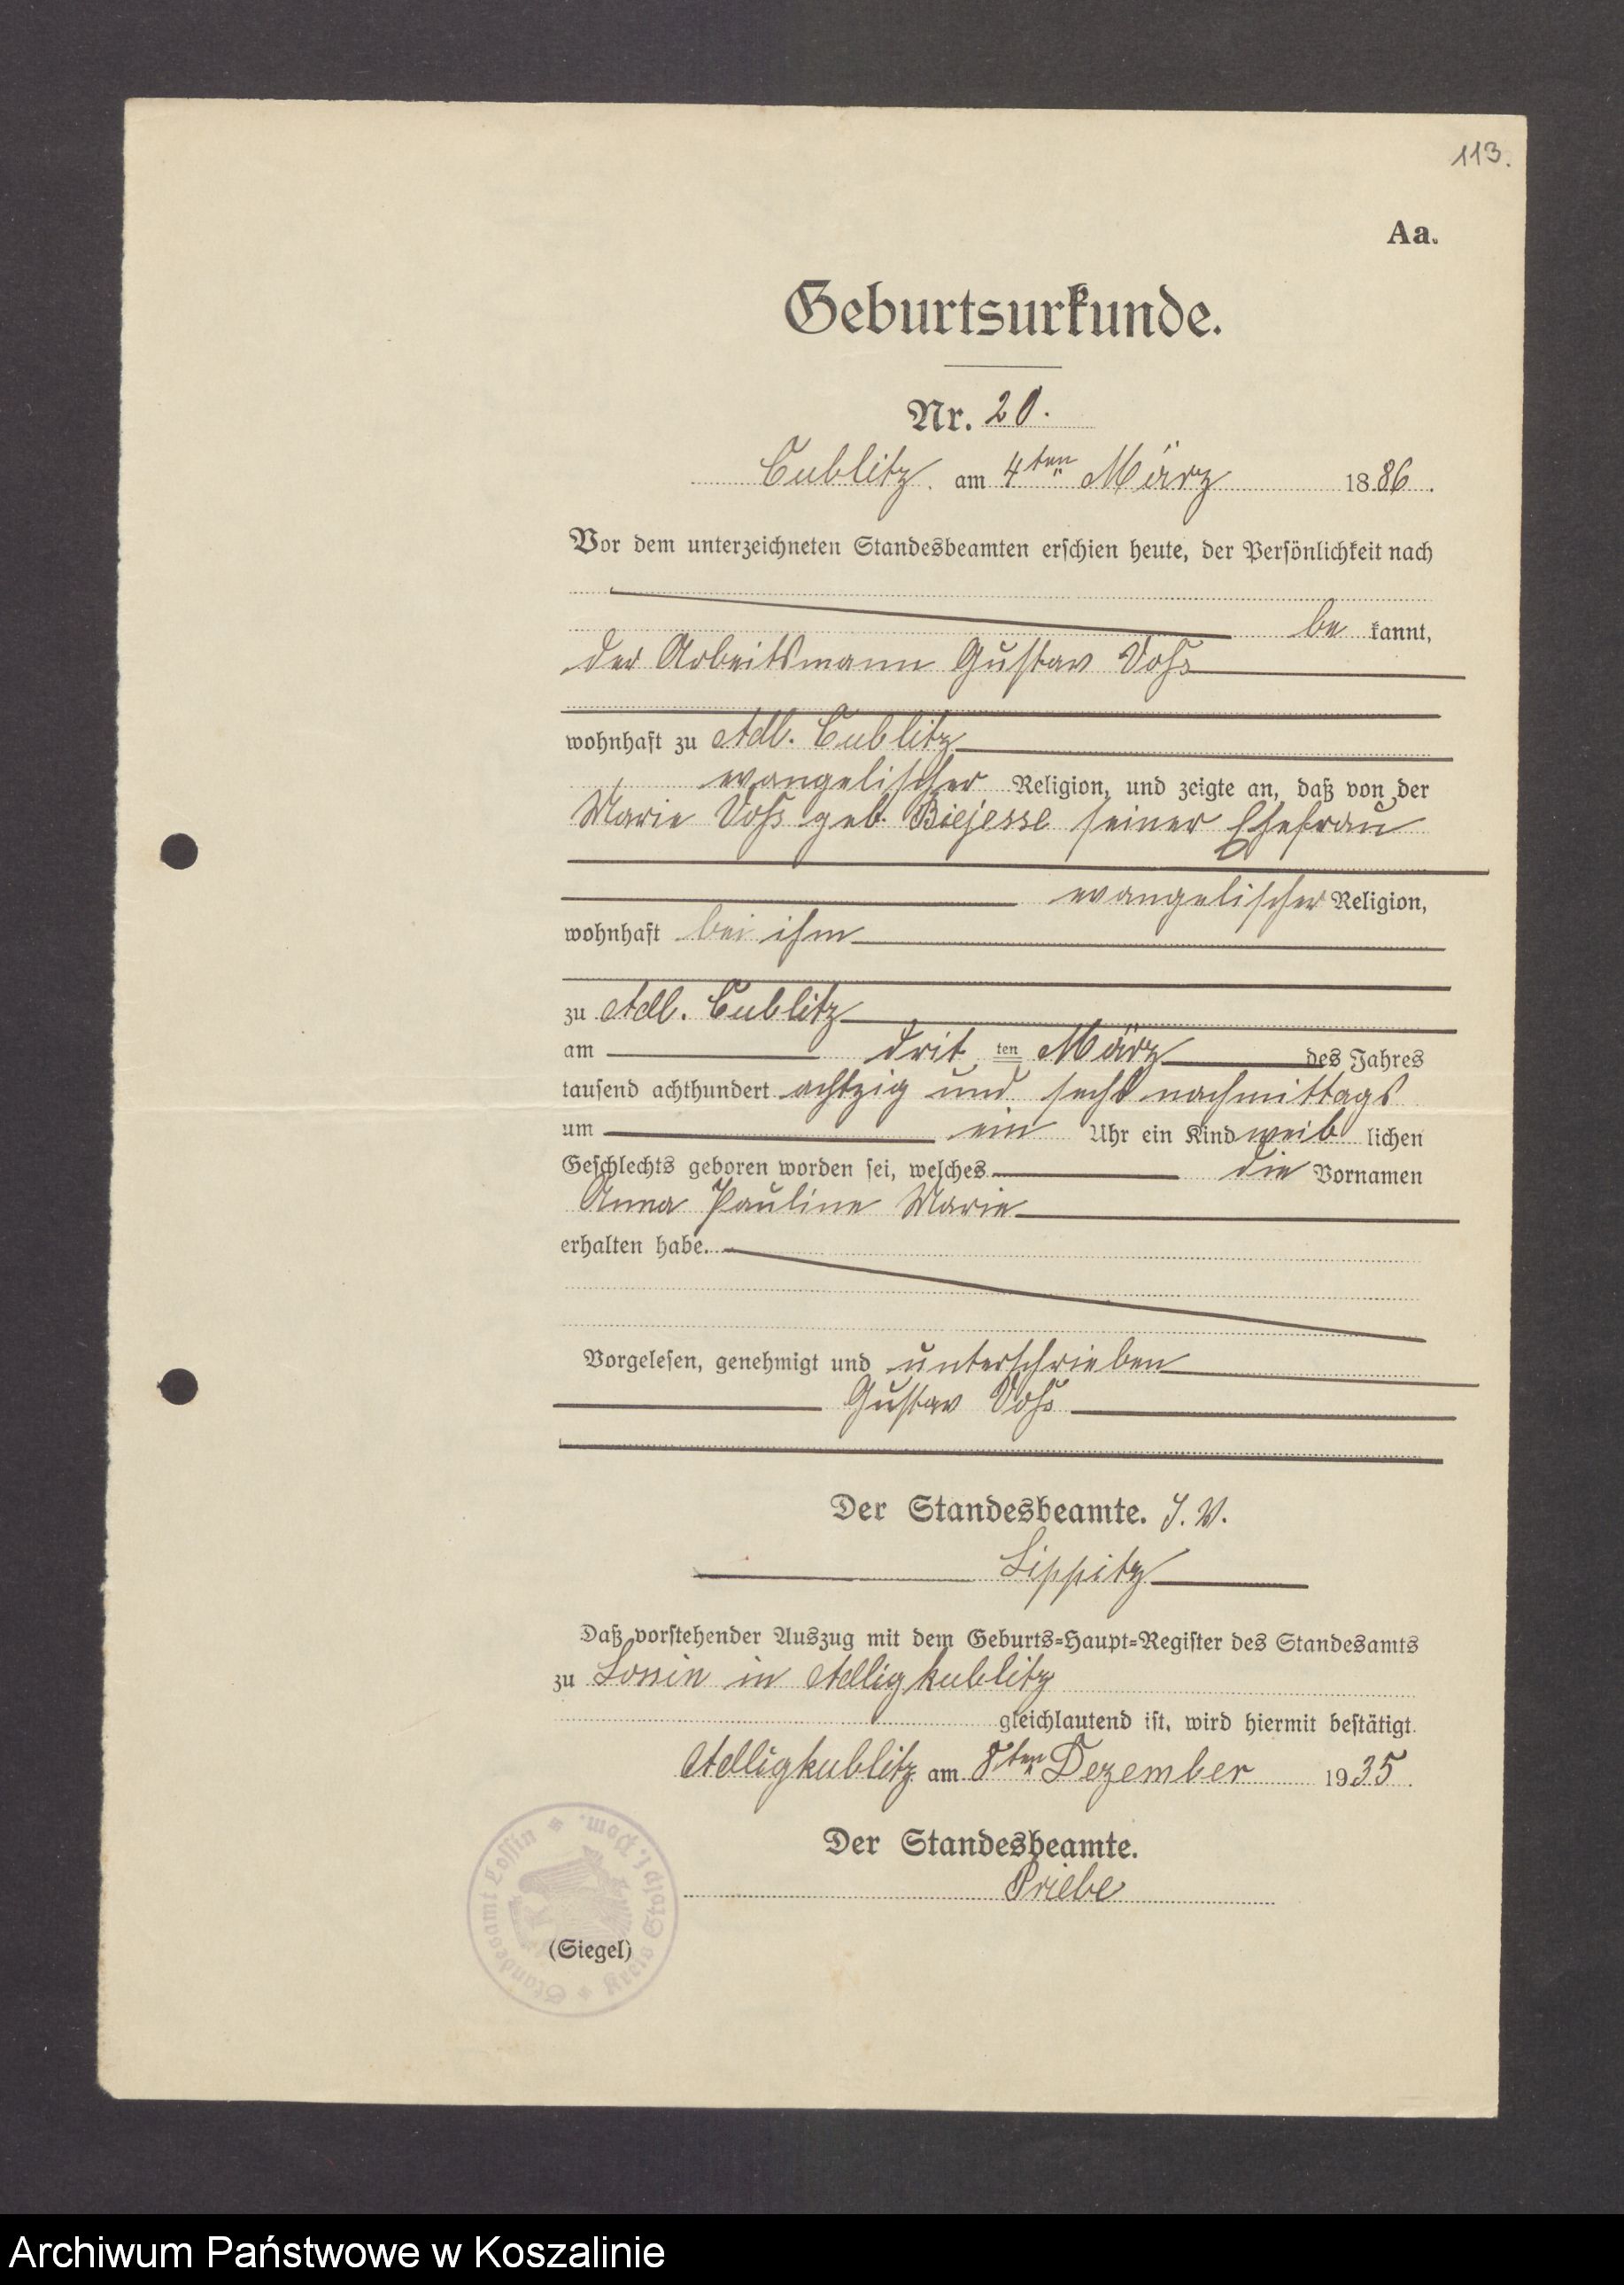 113.
Aa.
Geburtsurkunde.
Nr. 20.
Cublitz. am 4ten März 1886.
Vor dem unterzeichneten Standesbeamten erschien heute, der Persönlichkeit nach
be kannt,
der Arbeitsmann Gustav Voß
wohnhaft zu Adl. Cublitz
evangelischer Religion, und zeigte an, daß von der
Marie Voß geb. Biejesse seiner Ehefrau
evangelischer Religion,
wohnhaft bei ihm
zu Adl. Cublitz
am drit ten März des Jahres
tausend achthundert achtzig und sechs nachmittags
um ein Uhr ein Kind weib lichen
Geschlechts geboren worden sei, welches die Vornamen
Anna Pauline Marie
erhalten habe.
Vorgelesen, genehmigt und unterschrieben
Gustav Voß
Der Standesbeamte. J. V.
Lippitz
Daß vorstehender Auszug mit dem Geburts-Haupt-Register des Standesamts
zu Lossin in Adligkublitz
gleichlautend ist, wird hiermit bestätigt.
Adligkublitz am 8ten Dezember 1935.
Der Standesbeamte.
Priebe
(Siegel)
Standesamt Lossin * Kreis Stolp i. Pom. *
Archiwum Państwowe w Koszalinie